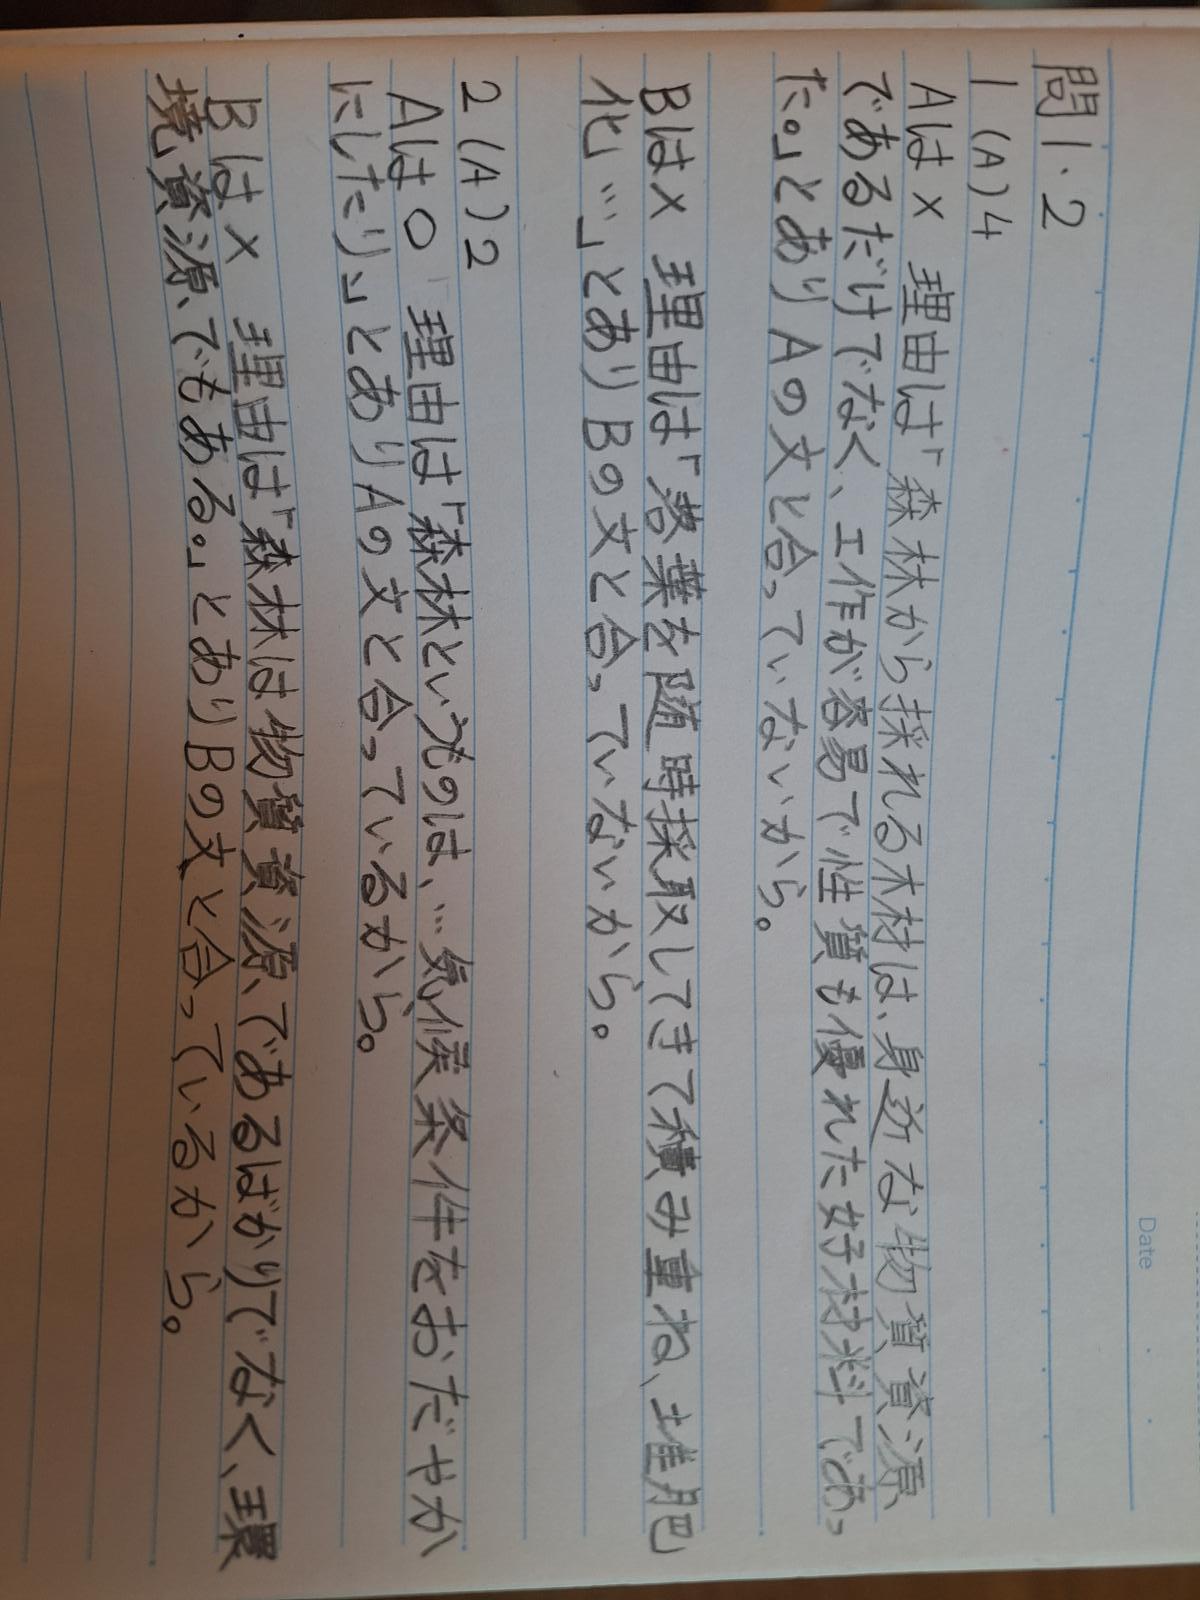 Date
問1.2
1 (A)4
Aは× 理由は「森林から採れる木材は、身近な物質資源
であるだけでなく、工作が容易で性質も優れた好材料であっ
た。」とありAの文と合っていないから。
Bは× 理由は「落葉を随時採取してきて積み重ね、堆肥
化…」とありBの文と合っていないから。
2 (A)2
Aは○ 理由は「森林というものは、…気候条件をおだやか
にしたり」とありAの文と合っているから。
Bは× 理由は「森林は物質資源であるばかりでなく、環
境資源でもある。」とありBの文と合っているから。